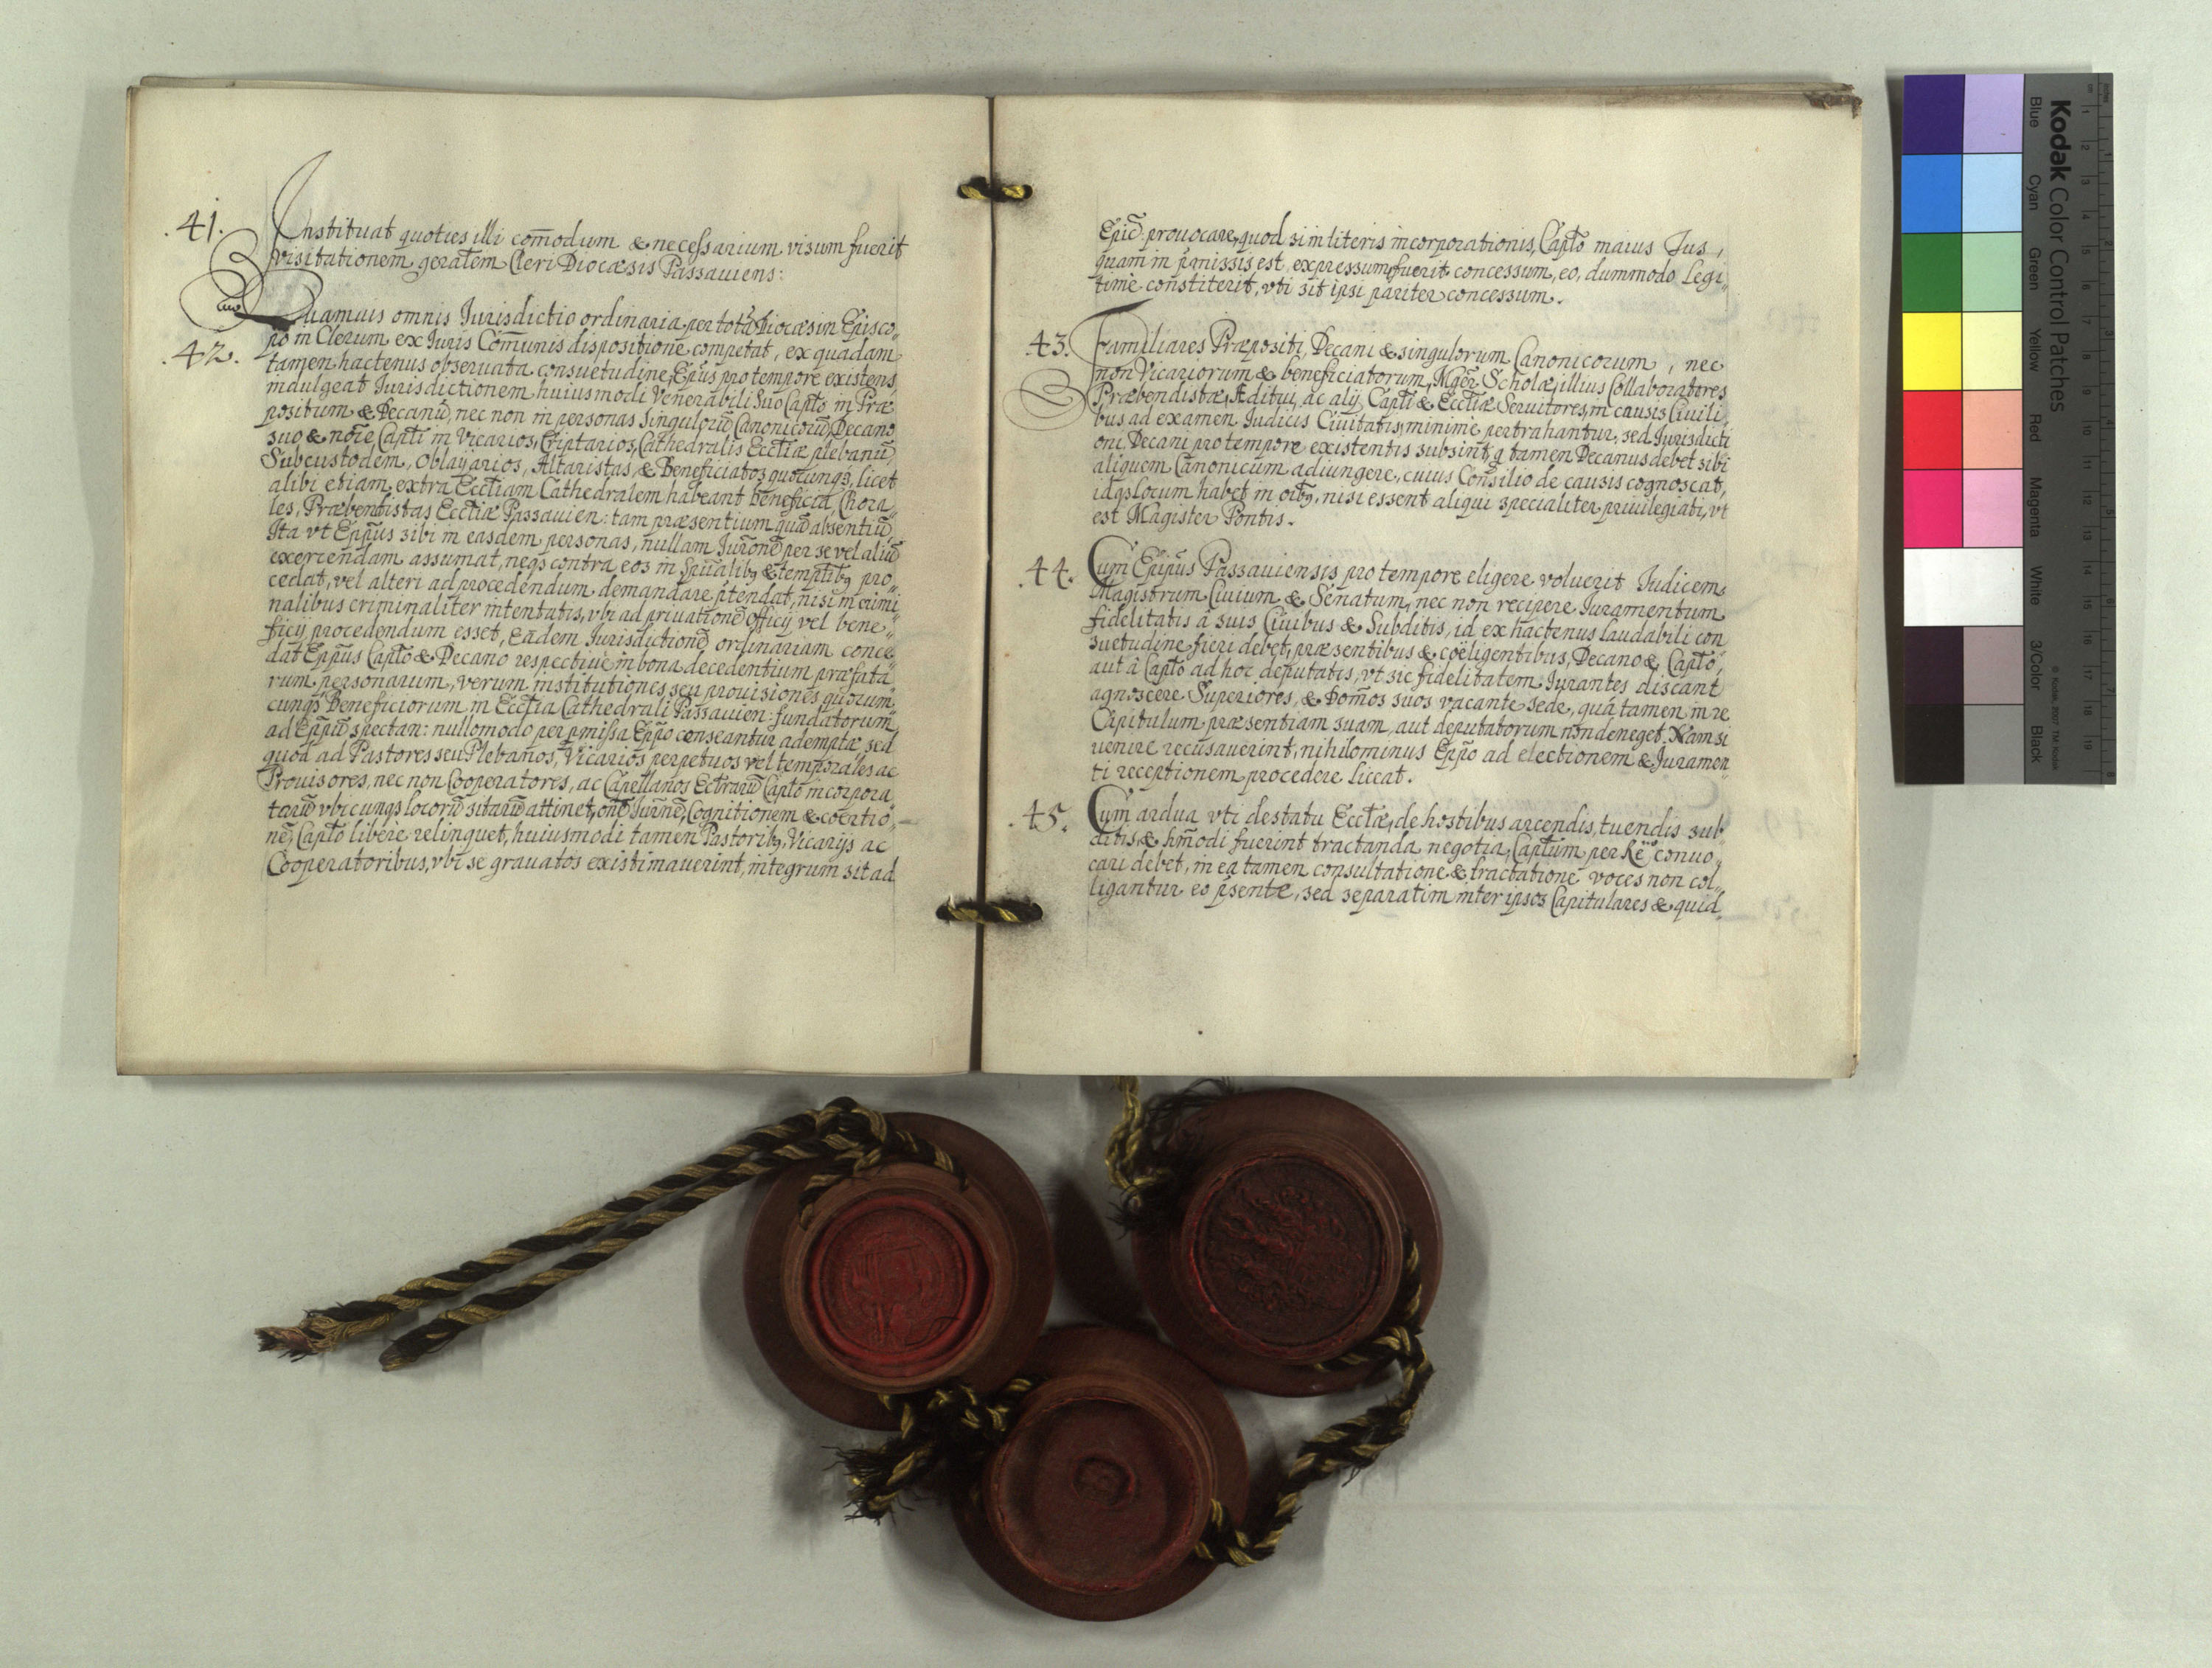 .41. Instituat quoties illi com̄odum & necessarium visum fuerit
visitationem gēralem Cleri Diocæsis Passauiens:
Quamuis omnis Iurisdictio ordinaria per totā Diocæsin Episco„
.42. po in Clerum ex Iuris Com̄unis dispositione competat, ex quadam
tamen hactenus obseruata consuetudine, Ep̄us pro tempore existens,
indulgeat Iurisdictionem huiusmodi Venerabili Suo Cap̄to in Præ„
positum & Decanū, nec non in personas Singulorū Canonicorū, Decano
suo & nōie Cap̄ti in Vicarios, Criptarios, Cathedralis Eccl̄iæ plebanū,
Subcustodem, Oblayarios, Altaristas, & Beneficiatos quoscunq̨, licet
alibi etiam extra Eccl̄iam Cathedralem habeant beneficia, Chora„
les, Præbentistas Eccl̄iæ Passauien: tam præsentium quā absentiū,
Ita vt Ep̄pus sibi in easdem personas, nullam Iurōnē per se vel aliū
exercendam assumat, neq̨ contra eos in Sp̄ualib9 & temp̄lib9 pro„
cedat, vel alteri ad procedendum demandare p̄tendat, nisi in crimi„
nalibus criminaliter intentatis, vbi ad priuationē officij vel bene„
ficij procedendum esset, Eadem Iurisdictionē ordinariam conce„
dat Ep̄pus Cap̄to & Decano respectiue in bona decedentium præfata„
rum personarum, verum institutiones seu prouisiones quorum„
cunq̨ Beneficiorum in Eccl̄ia Cathedrali Passauien: fundatorum
ad Ep̄pū spectan: nullomodo per p̄missa Ep̄po censeantur ademptæ, sed
quod ad Pastores seu Plebanos, Vicarios perpetuos vel temporales ac
Prouisores, nec non Cooperatores, ac Capellanos Eccl̄iarū Cap̄to incorpora„
tarū vbicunq̨ locorū sitarū attinet, om̄ē Iurōnē, Cognitionem & coertio„
nē, Cap̄to libere relinquet, huiusmodi tamen Pastorib9, Vicarijs ac
Cooperatoribus, vbi se grauatos existimauerint, integrum sit ad
Ep̄um prouocare, quod si in literis incorporationis, Cap̄to maius Ius,
quam in p̄missis est expressum, fuerit concessum, eo, dummodo Legi„
timè constiterit, vti sit ipsi pariter concessum.
.43. Familiares Præpositi, Decani & singulorum Canonicorum, nec
non Vicariorum & beneficiatorum, Mg̃er Scholæ, illius Collaboratores
Præbendistæ, Æditui, ac alij Cap̄ti & Eccl̄iæ Seruitores, in causis Ciuili„
bus ad examen Iudicis Ciuitatis, minime pertrahantur, sed Iurisdicti
oni Decani pro tempore existentis subsint, q̨ tamen Decanus debet sibi
aliquem Canonicum adiungere, cuius Consilio de causis cognoscat,
idq̨ locum habet in oīb9, nisi essent aliqui specialiter priuilegiati, vt
est Magister Pontis.
.44. Cum Ep̄pus Passauiensis pro tempore eligere voluerit Iudicem,
Magistrum Ciuium & Senatum, nec non recipere Iuramentum
fidelitatis à suis Ciuibus & Subditis, id ex hactenus laudabili con
suetudine fieri debet, præsentibus & coëligentibus, Decano & Cap̄to,
aut à Cap̄to ad hoc deputatis, vt sic fidelitatem Iurantes discant
agnoscere Superiores, & Dom̄os suos vacante sede, quā tamen in re
Capitulum præsentiam suam, aut deputatorum non deneget, Nam si
uenire recusauerint, nihilominus Ep̄po ad electionem & Iuramen„
ti receptionem procedere liceat.
.45. Cum ardua vti de statu Eccl̄æ, de hostibus arcendis, tuendis sub„
ditis, & hm̄odi fuerint tractanda negotia, Cap̄tum per conuo„
cari debet, in ea tamen consultatione & tractatione voces non col„
ligantur eo p̄sente, sed separatim inter ipsos Capitulares & quid
Kodak Color Control Patches
Blue Cyan Green Yellow Red Magenta White 3/Color Black
© Kodak, 2007 TM: Kodak